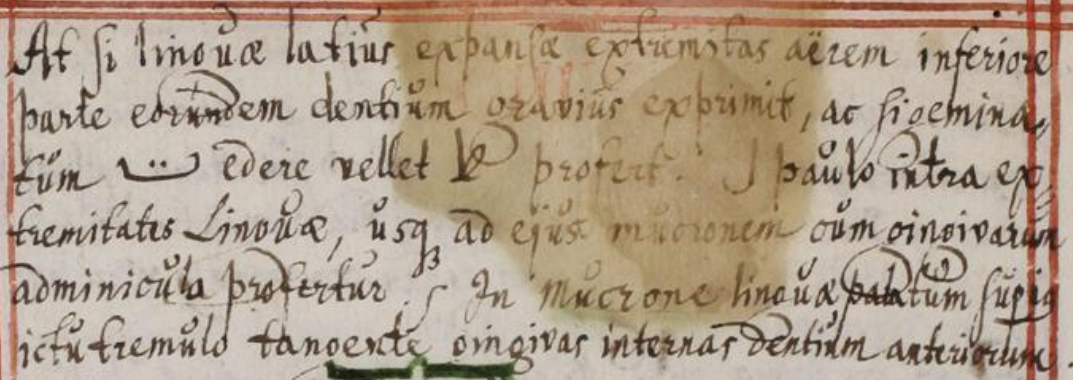 At si linguæ latius expansæ extremitas aërem inferiore
parte eorundem dentium gravius exprimit, ac si gemina-
tum ت edere vellet ط profert. ل paulo intra ex-
tremitates Linguæ, usq ad ejus mucronem cum gingivarum
adminicula profertur. ر In mucrone linguæ palatum
ictu tremulo tangente gingivas internas dentium anteriorum.